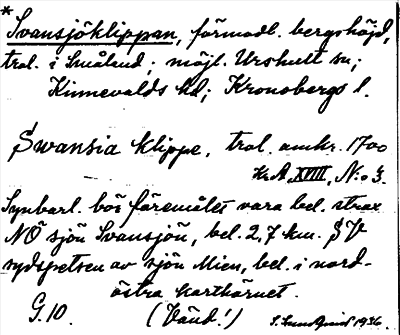 *
Svansjöklippan, förmodl. bergshöjd,
trol. i Småland; möjl. Urshult sn;
Kinnevalds hd; Kronobergs l.
Swansia klippe, trol. omkr. 1700
Kr.A. XVIII, N:o 3.
Synbarl. bör föremålet vara bel. strax
NÖ sjön Svansjön, bel. 2,7 km. S V
sydspetsen av sjön Mien, bel. i nord-
östra karthörnet.
G. 10. (Vänd!) 1926